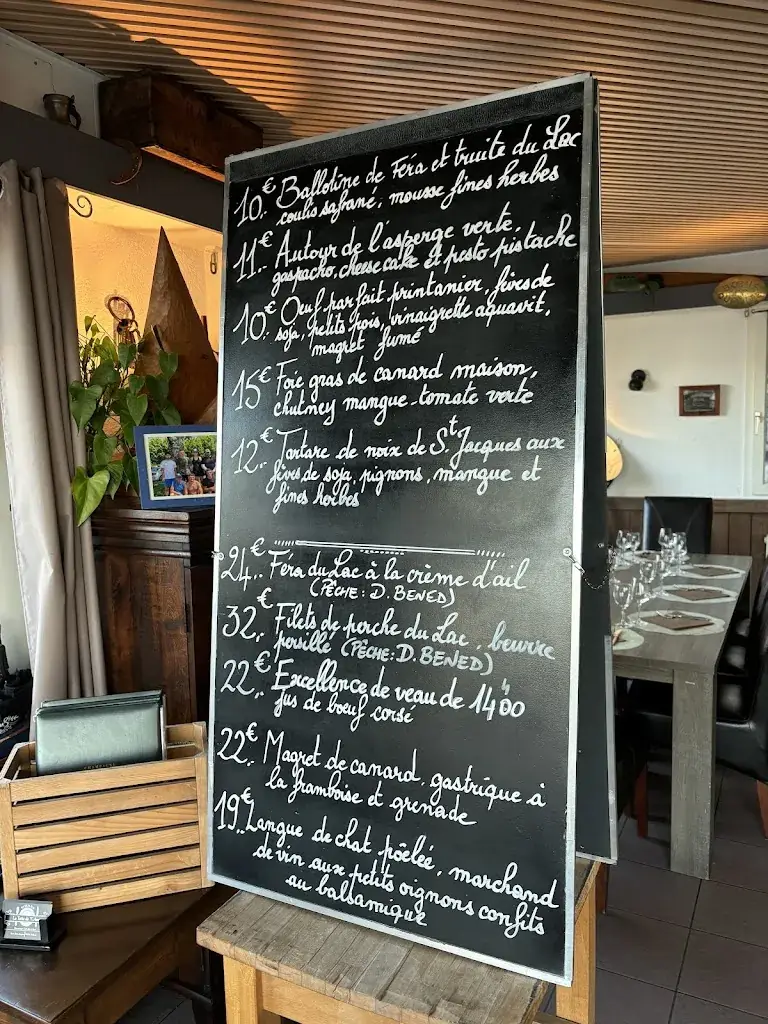 10.€ Ballotine de Féra et truite du Lac
coulis safrané, mousse fines herbes
11.€ Autour de l'asperge verte,
gaspacho, cheese cake et pesto pistache
10.€ Oeuf parfait printanier, fèves de
soja, petits pois, vinaigrette aquavit,
magret fumé
15€ Foie gras de canard maison,
chutney mangue-tomate verte
12.€ Tartare de noix de St Jacques aux
fèves de soja, pignons, mangue et
fines herbes
24.€ Féra du Lac à la crème d'ail
(PÊCHE: D. BENED)
32.€ Filets de perche du Lac, beurre
persillé (PÊCHE: D. BENED)
22.€ Excellence de veau de 14h00
jus de boeuf corsé
22.€ Magret de canard, gastrique à
la framboise et grenade
19.€ Langue de chat poêlée, marchand
de vin aux petits oignons confits
au balsamique